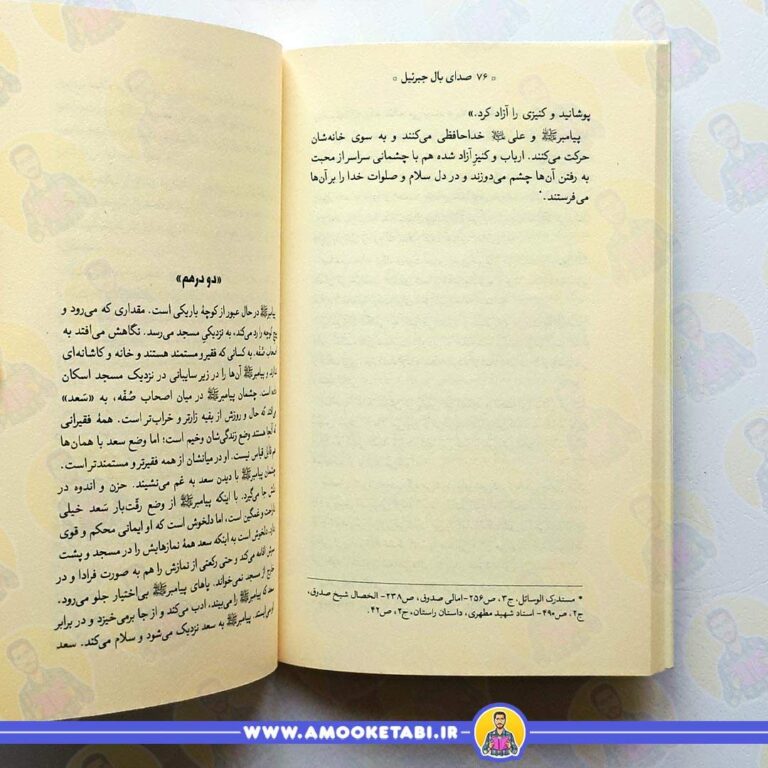 ۷۶ صدای بال جبرئیل
پوشانید و کنیزی را آزاد کرد.»
پیامبرﷺ و علی خداحافظی می‌کنند و به سوی خانه‌شان
حرکت می‌کنند. ارباب و کنیزِ آزاد شده هم با چشمانی سراسر از محبت
به رفتن آن‌ها چشم می‌دوزند و در دل سلام و صلوات خدا را بر آن‌ها
می‌فرستند.*
* مستدرک الوسائل، ج۳، ص۲۵۶- امالی صدوق، ص۲۳۸- الخصال شیخ صدوق،
ج۲، ص۴۹۰- استاد شهید مطهری، داستان راستان، ج۲، ص۴۲.
«دو درهم»
پیامبرﷺ در حال عبور از کوچهٔ باریکی است. مقداری که می‌رود و
کوچه را رد می‌کند، به نزدیکیِ مسجد می‌رسد. نگاهش می‌افتد به
اصحاب صُفّه. به کسانی که فقیر و مستمند هستند و خانه و کاشانه‌ای
و پیامبرﷺ آن‌ها را در زیر سایبانی در نزدیک مسجد اسکان
است. چشمان پیامبرﷺ در میان اصحاب صُفّه، به «سَعد»
که حال و روزش از بقیه زارتر و خراب‌تر است. همهٔ فقیرانی
که آنجا هستند وضع زندگی‌شان وخیم است؛ اما وضع سعد با همان‌ها
هم قابل قیاس نیست. او در میانشان از همه فقیرتر و مستمندتر است.
چشمان پیامبرﷺ با دیدن سعد به غم می‌نشیند. حزن و اندوه در
جا می‌گیرد. با اینکه پیامبرﷺ از وضع رقّت‌بار سَعد خیلی
ناراحت و غمگین است، اما دلخوش است که او ایمانی محکم و قوی
دارد. دلخوش است به اینکه سعد همهٔ نمازهایش را در مسجد و پشت
اقامه می‌کند و حتی رکعتی از نمازش را هم به صورت فرادا و در
خارج از مسجد نمی‌خواند. پاهای پیامبرﷺ بی‌اختیار جلو می‌رود.
سعد که پیامبرﷺ را می‌بیند، ادب می‌کند و از جا برمی‌خیزد و در برابر
می‌ایستد. پیامبرﷺ به سعد نزدیک می‌شود و سلام می‌کند. سعد
WWW.AMOOKETABI.IR